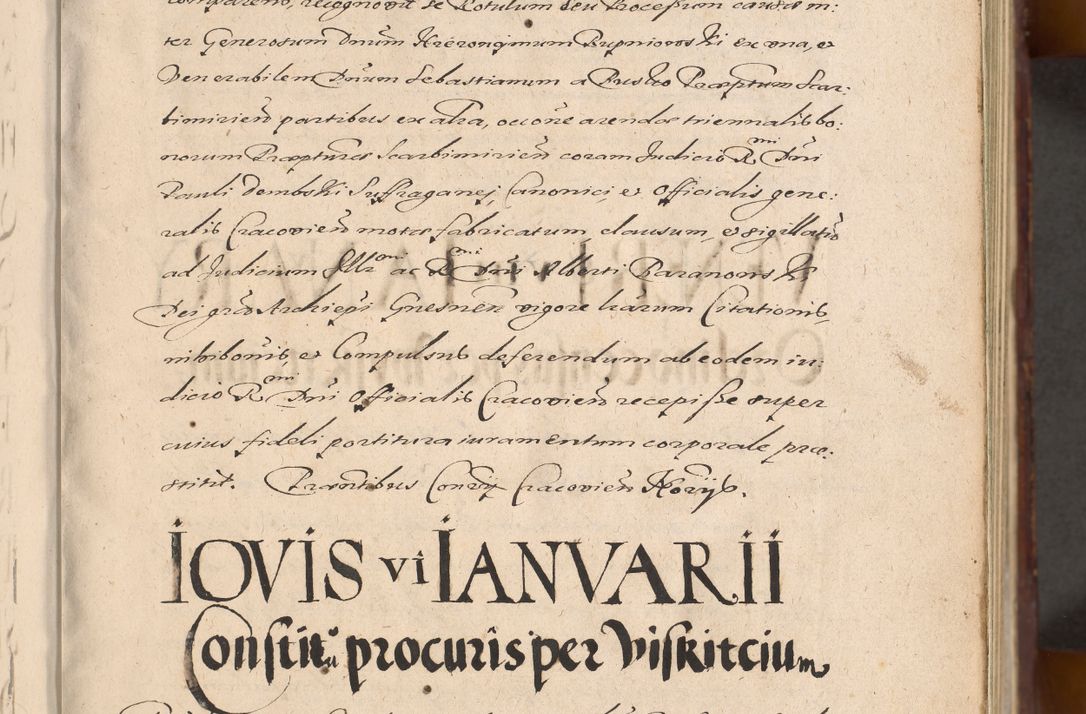 comparens, recognovit se Rotulum seu Processum causæ in:
ter Generosum Dnum Hieronymum Rupniowski ex una, et
Venerabilem Dnum Sebastianum a Præptum Scar:
bimirien partibus ex altra, occone arendæ triennalis bo:
norum Præpturæ Scarbimirien coram Judicio Rmi Dni
Pauli Dembski Suffraganei, Canonici, et Officialis gene:
ralis Cracovien motæ fabricatum, clausum, et sigillatum
ad Judicium Illmi ac Rmi Dni Alberti Baranowski
Dei gra Archiepi Gnesnen vigore harum Citationis,
nibibonis, et Compulsus deferendum ab eodem iu:
dicio Rmi Dni Officialis Cracovien recepisse super
cuius fideli portitura iuramentum corporale præ:
stitit. Præntibus Consry Cracovien Norijs.
IOVIS VI IANVARII
Constitu procuris per Viskitcium